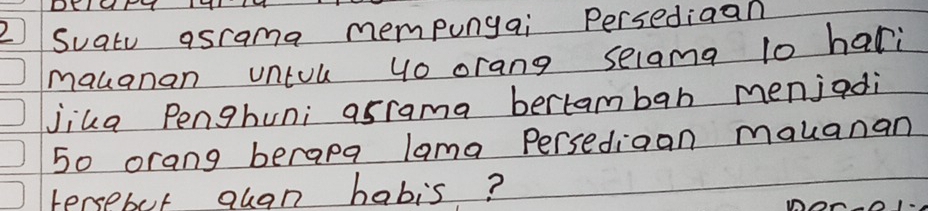 2 Suatu asrama mempunyai Persediaan
makanan untuk 40 orang selama 10 hari
jika Penghuni asrama bertambah menjadi
50 orang berapa lama Persediaan makanan
tersebut akan habis ?